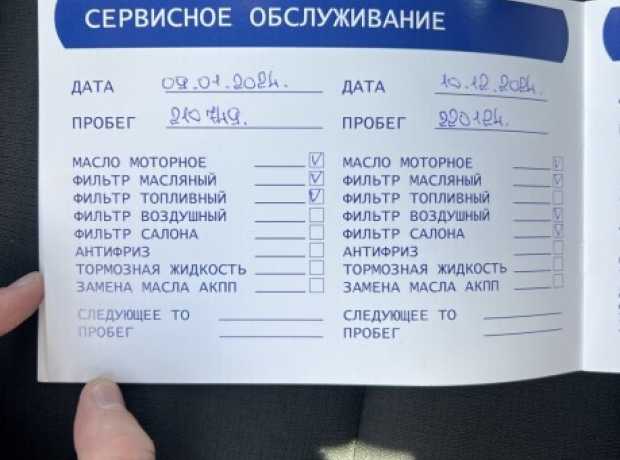 СЕРВИСНОЕ ОБСЛУЖИВАНИЕ
ДАТА 09.01.2024.
ПРОБЕГ 210749.
МАСЛО МОТОРНОЕ
ФИЛЬТР МАСЛЯНЫЙ
ФИЛЬТР ТОПЛИВНЫЙ
ФИЛЬТР ВОЗДУШНЫЙ
ФИЛЬТР САЛОНА
АНТИФРИЗ
ТОРМОЗНАЯ ЖИДКОСТЬ
ЗАМЕНА МАСЛА АКПП
СЛЕДУЮЩЕЕ ТО
ПРОБЕГ
ДАТА 10.12.2024.
ПРОБЕГ 220124.
МАСЛО МОТОРНОЕ
ФИЛЬТР МАСЛЯНЫЙ
ФИЛЬТР ТОПЛИВНЫЙ
ФИЛЬТР ВОЗДУШНЫЙ
ФИЛЬТР САЛОНА
АНТИФРИЗ
ТОРМОЗНАЯ ЖИДКОСТЬ
ЗАМЕНА МАСЛА АКПП
СЛЕДУЮЩЕЕ ТО
ПРОБЕГ